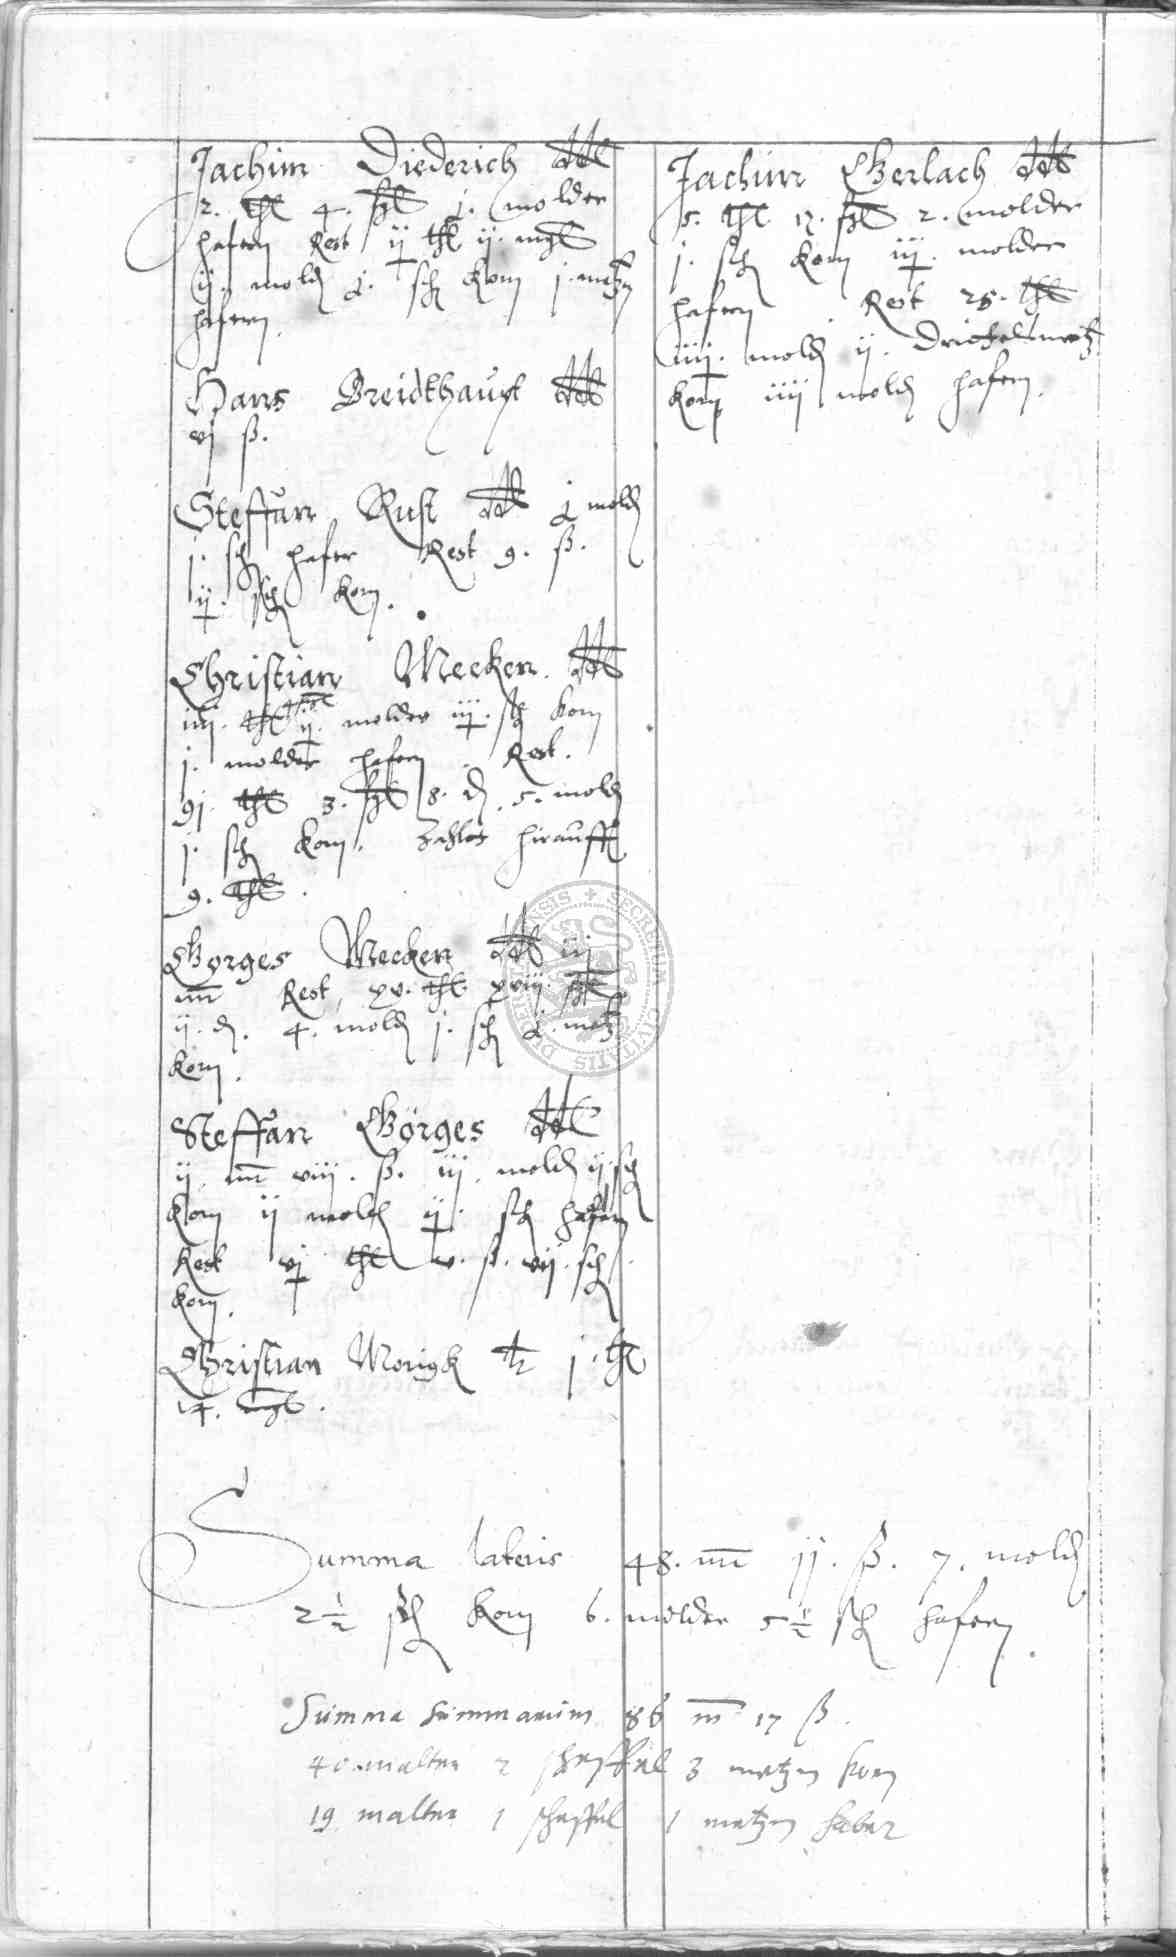 Jachim Diederich dt
2. thl 4. ßgl 1. molder
hafern Rest ij thl ij. mgl
ij. mold 1. sch korn j. metzn
hafern.
Hans Breidthaupt dt
vj ß.
Steffan Rust dt mold
j. sch hafer Rest 9. ß.
ij. sch korn.
Christian Mecken. dt
iiij. thl ij. molder iij. sch korn
j. molder hafern. Rest.
91. thl 3. ßgl 8. d. 5. mold
j. sch korn. zahlet hirauff
9. thl.
Gorges Mecken dt iij
m Rest xv. thl. xviij.
ij. d. 4. mold j. sch metz
korn.
Steffan Görges dt
ij. m viij. ß. iij. mold ij. sch
korn ij mold ij. sch hafern
Rest vj thl v. ß. vij. sch
korn.
Christian Monigk j.
14. mgl.
Jachim Gerlach dt
5. thl. 17. ßgl 2. molder
j. sch korn iij. molder
hafern Rest 28. thl
iiij. mold ij.
korn iiij mold hafern.
Summa lateris 48. m ij. ß. 7. mold
2 1/2 sch korn 6. molder 5 1/2 sch hafern.
Summa Summarum 86 m 17 ß.
40 malter 2 scheffel 3 metzn korn
19 malter 1 scheffel 1 metzn haber
SECRETUM CIVITATIS